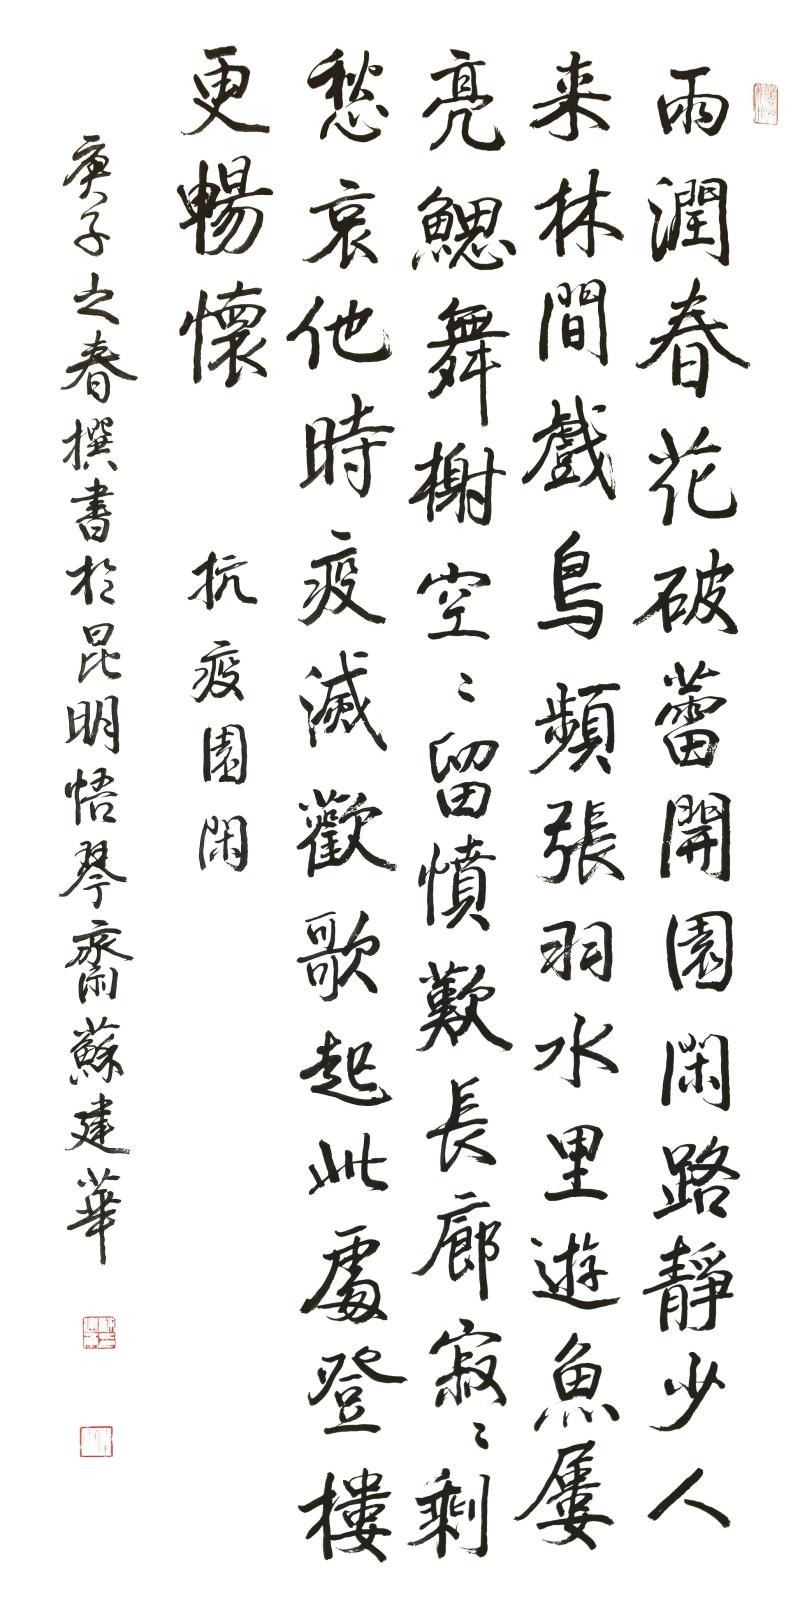 雨潤春花破蕾開園閑路靜少人
来林間戲鳥頻張羽水里遊魚屢
亮鰓舞榭空〻留憤歎長廊寂〻剩
愁哀他時疫滅歡歌起此處登樓
更暢懷
抗疫園閑
庚子之春撰書於昆明悟琴齋蘇建華